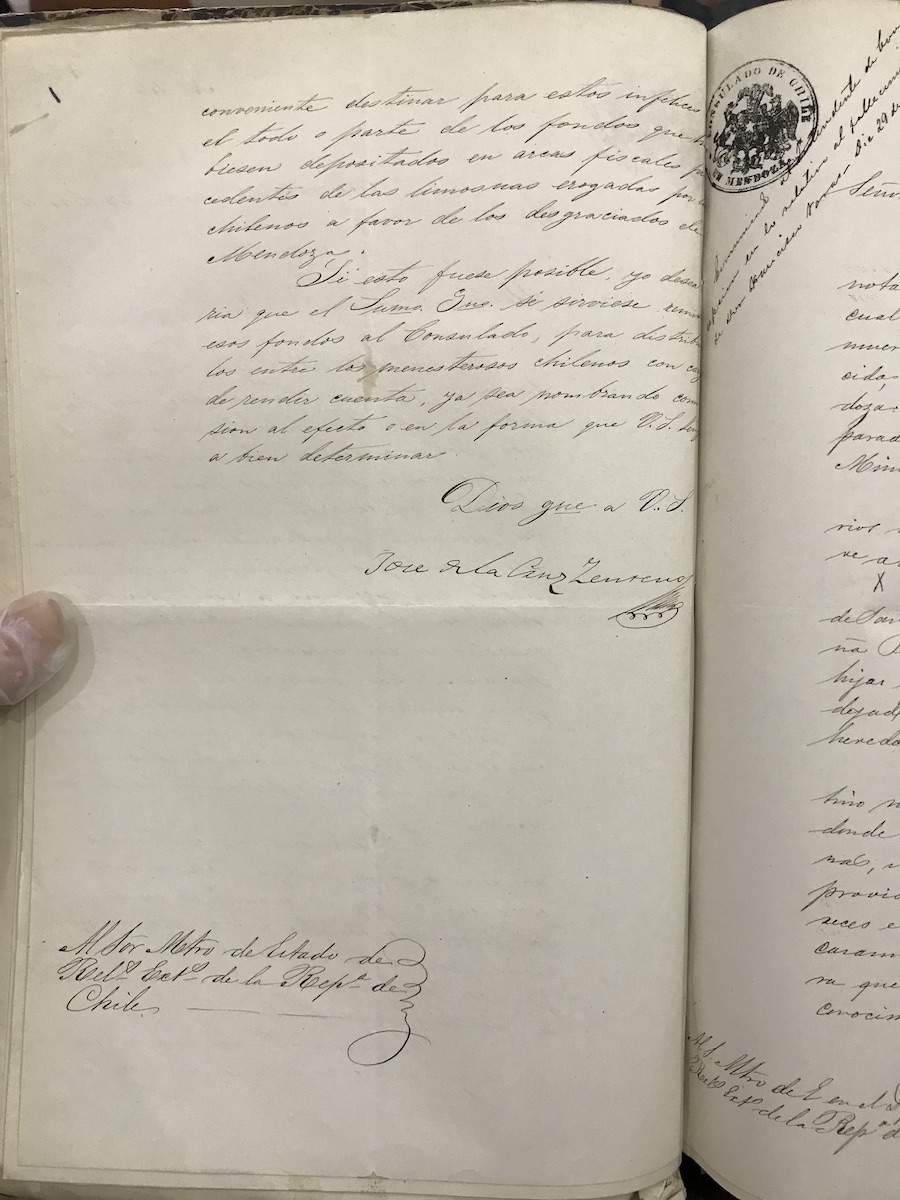 conveniente destinar para estos infelices
el todo o parte de los fondos que
biesen depositados en arcas fiscales
cedentes de las limosnas erogadas por
chilenos a favor de los desgraciados de
Mendoza.
Si esto fuese posible, yo desea
ria que el Supmo. Gno. se sirviese
esos fondos al Consulado, para distribu
los entre los menesterosos chilenos con
de rendir cuenta, ya sea nombrando comi
sion al efecto o en la forma que V.S.
a bien determinar
Dios gue a V.S.
Jose de la Cruz Zenteno
Al Sor Mtro de Estado de
Rels. Exts. de la Repa. de
Chile
CONSULADO DE CHILE
EN MENDOZA
Dic 29 de
Señor
nota
cual
muer
cida
doza
parad
Mini
rios
ve a
X
de San
ña
hijas
dejad
hereda
tino
donde
nas,
provin
veces e
caram
ra que
conocim
Al S. Mtro de E en el
Rels Exts de la Repa. d